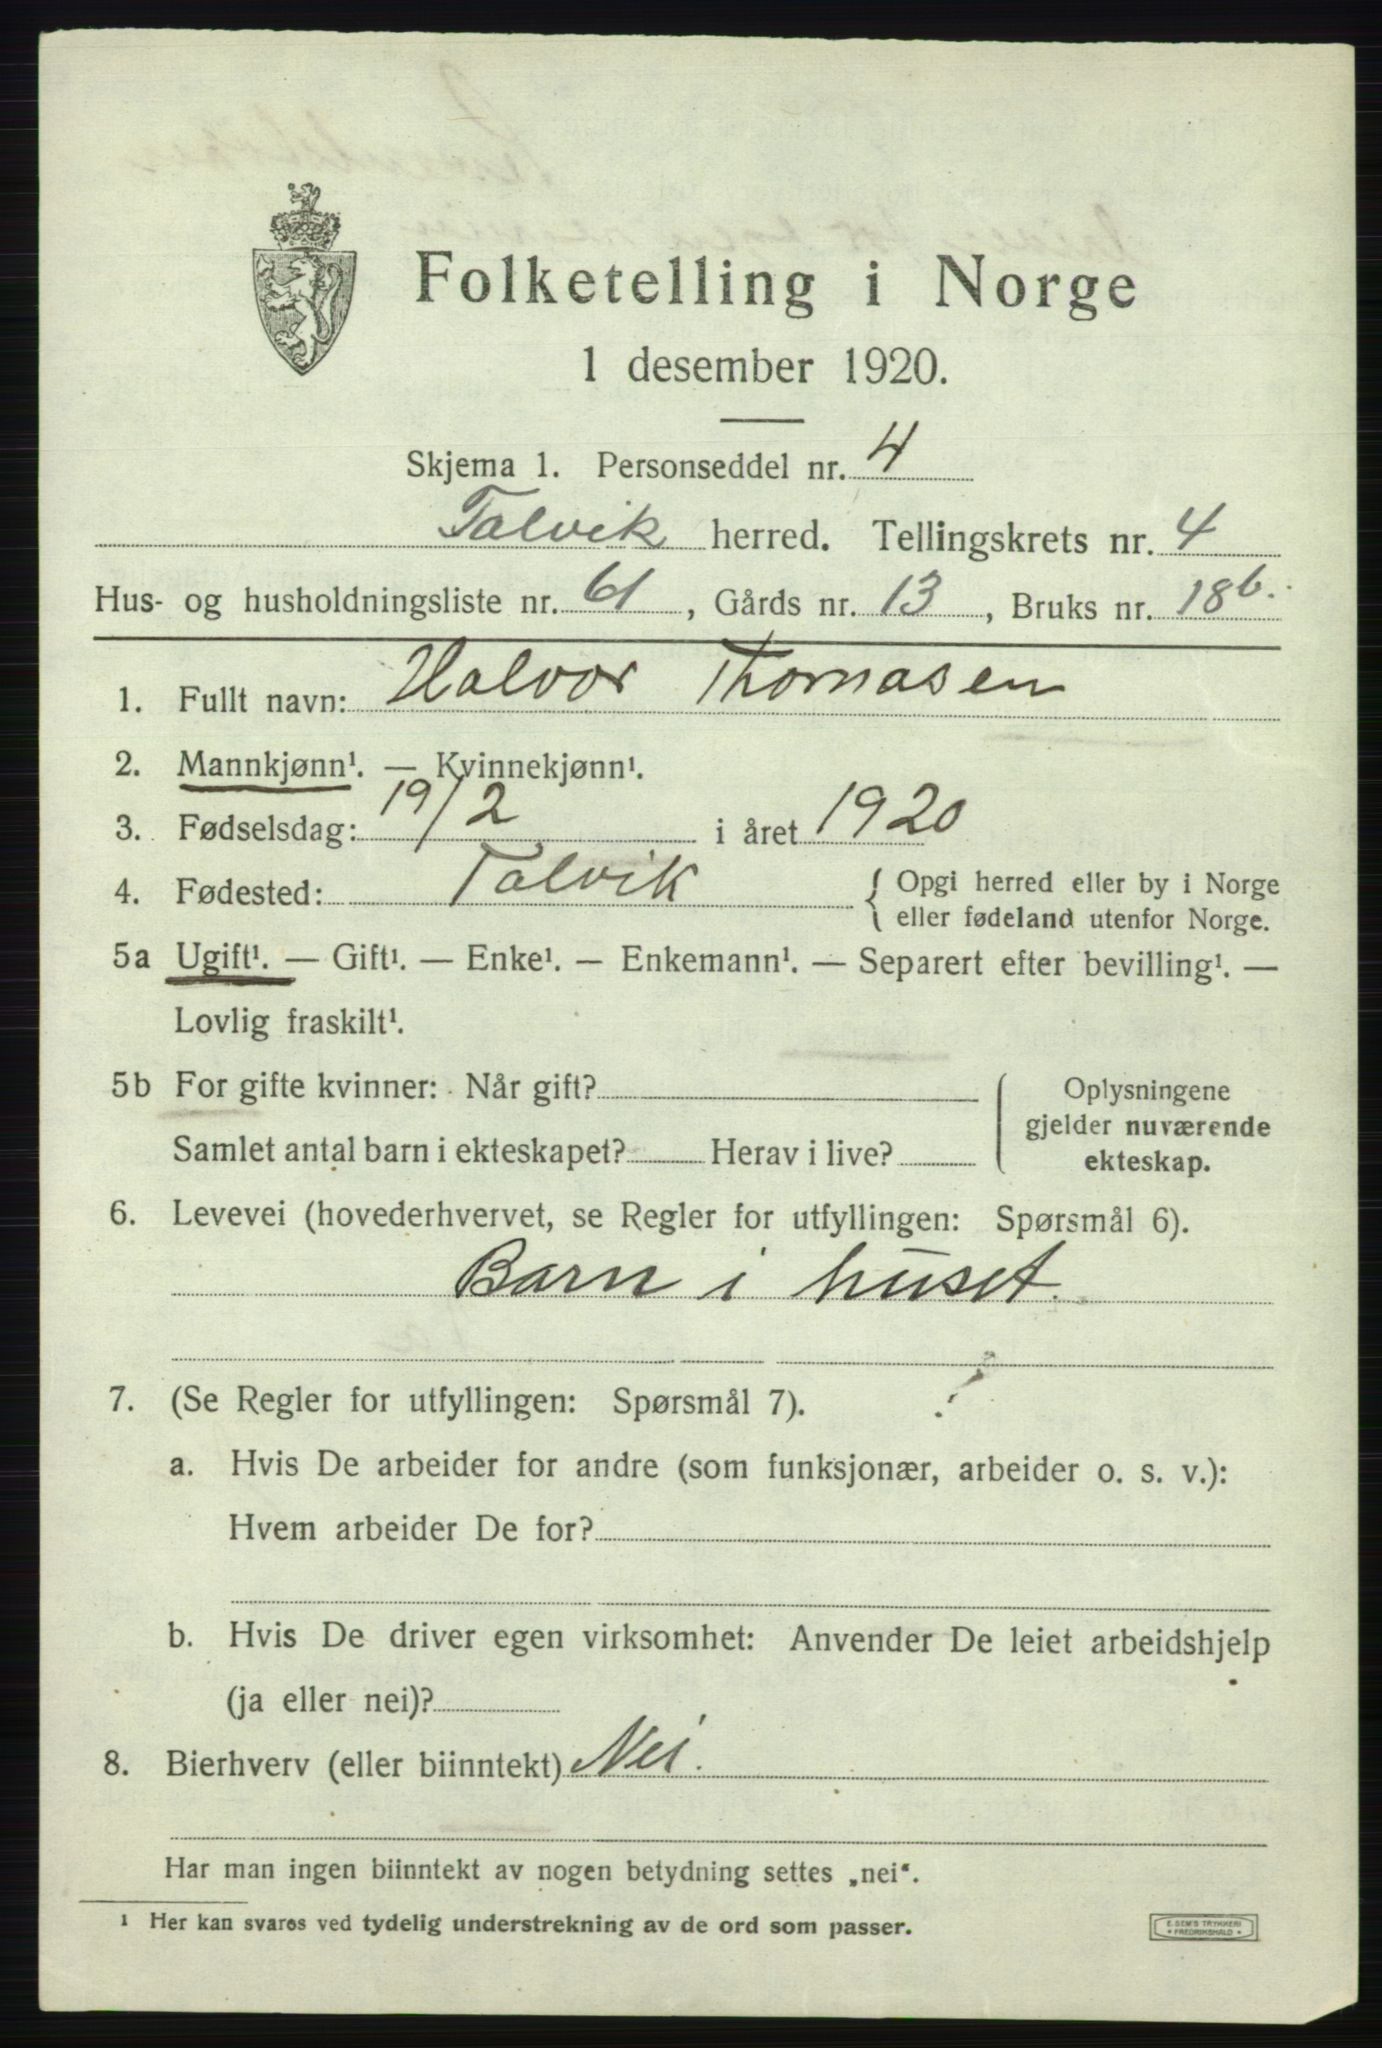 Folketelling i Norge
1 desember 1920.
Skjema 1. Personseddel nr. 4
Talvik herred. Tellingskrets nr. 4
Hus- og husholdningsliste nr. 61, Gårds nr. 13, Bruks nr. 18b.
1. Fullt navn: Halvor Thomasen
2. Mannkjønn¹. — Kvinnekjønn¹.
3. Fødselsdag: 19/2 i året 1920
4. Fødested: Talvik { Opgi herred eller by i Norge
eller fødeland utenfor Norge.
5a Ugift¹. — Gift¹. — Enke¹. — Enkemann¹. — Separert efter bevilling¹. —
Lovlig fraskilt¹.
5b For gifte kvinner: Når gift?
Samlet antal barn i ekteskapet? Herav i live?
Oplysningene
gjelder nuværende
ekteskap.
6. Levevei (hovederhvervet, se Regler for utfyllingen: Spørsmål 6).
Barn i huset.
7. (Se Regler for utfyllingen: Spørsmål 7).
a. Hvis De arbeider for andre (som funksjonær, arbeider o. s. v.):
Hvem arbeider De for?
b. Hvis De driver egen virksomhet: Anvender De leiet arbeidshjelp
(ja eller nei)?
8. Bierhverv (eller biinntekt) Nei.
Har man ingen biinntekt av nogen betydning settes „nei“.
¹ Her kan svares ved tydelig understrekning av de ord som passer.
E. SEM'S TRYKKERI
* FREDRIKSHALD *